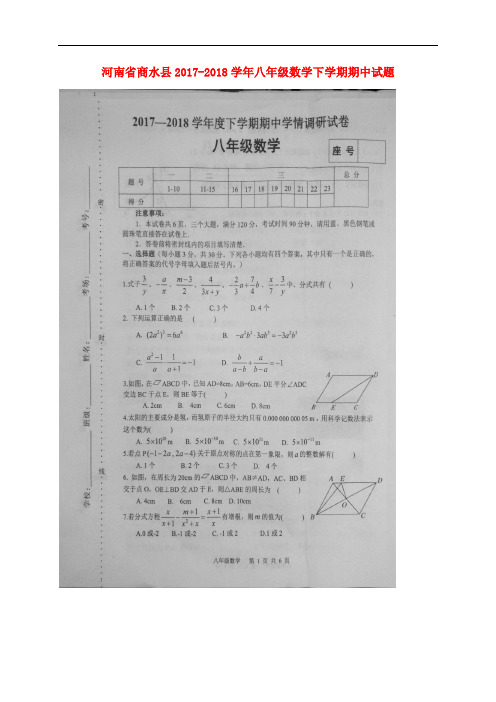 河南省商水县2017-2018学年八年级数学下学期期中试题
2017—2018学年度下学期期中学情调研试卷
八年级数学
座号
题号 一 二 三 总分
1-10 11-15 16 17 18 19 20 21 22 23
得分
注意事项：
1．本试卷共6页，三个大题，满分120分，考试时间90分钟，请用蓝、黑色钢笔或
圆珠笔直接答在试卷上．
2．答卷前将密封线内的项目填写清楚．
一、选择题（每小题3分，共30分，下列各小题均有四个答案，其中只有一个是正确的，
将正确答案的代号字母填入题后括号内。）
1.式子3/y、-a/π、(m-3)/2、4/(3x+y)、-2/3 a+7/4 b、x/7-3/y中，分式共有（ ）
A.1个 B.2个 C.3个 D.4个
2. 下列运算正确的是 （ ）
A. (2a²)³=6a⁶ B. -a²b²·3ab³=-3a²b⁵
C. (a²-1)/a·1/(a+1)=-1 D. b/(a-b)+a/(b-a)=-1
3.如图,在▱ABCD中,已知AD=8cm，AB=6cm，DE平分∠ADC
交边BC于点E，则BE等于( )
A. 2cm B. 4cm C. 6cm D. 8cm
A D
B E C
4.太阳的主要成分是氢，而氢原子的半径大约只有0.000 000 000 05 m，用科学记数法表示
这个数为( )
A. 5×10¹⁰ m B. 5×10⁻¹⁰ m C. 5×10¹¹ m D. 5×10⁻¹¹ m
5.若点P(-1-2a，2a-4)关于原点对称的点在第一象限，则a的整数解有( )
A.1个 B.2个 C.3个 D. 4个
6. 如图，在周长为20cm的▱ABCD中，AB≠AD，AC、BD相
交于点O，OE⊥BD交AD于E，则△ABE的周长为 （ ）
A. 4cm B. 6cm C. 8cm D. 10cm
A E D
O
B C
7.若分式方程x/(x+1)-(m+1)/(x²+x)=(x+1)/x有增根，则m的值为( )
A.0或-2 B.-1或-2 C. -1或2 D.1或2
八年级数学 第 1 页 共 6 页
学校：
班级：
姓名：
考场：
考号：
密
封
线